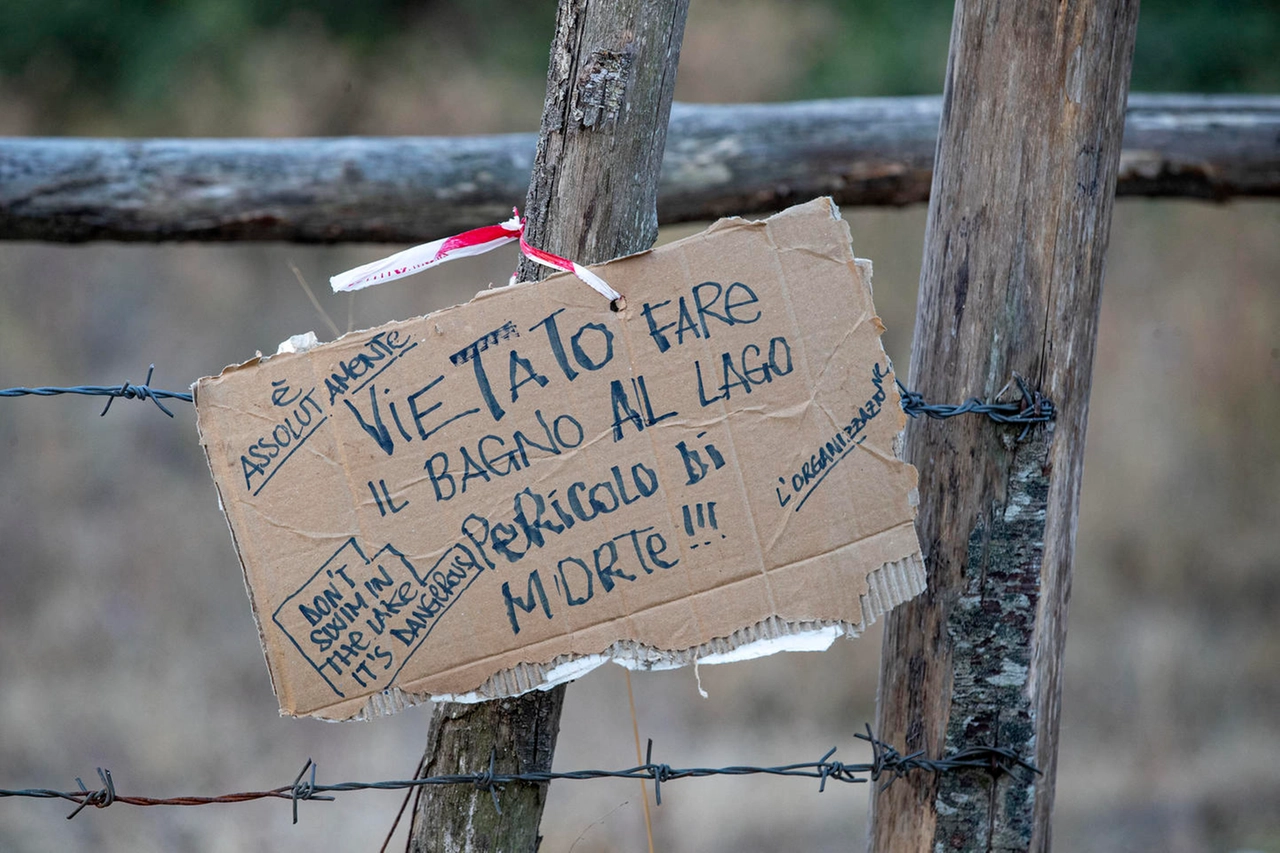 È
ASSOLUTAMENTE
VIETATO FARE
IL BAGNO AL LAGO
PERICOLO DI
MORTE !!!
L'ORGANIZZAZIONE
DON'T
SWIM IN
THE LAKE
IT'S DANGEROUS